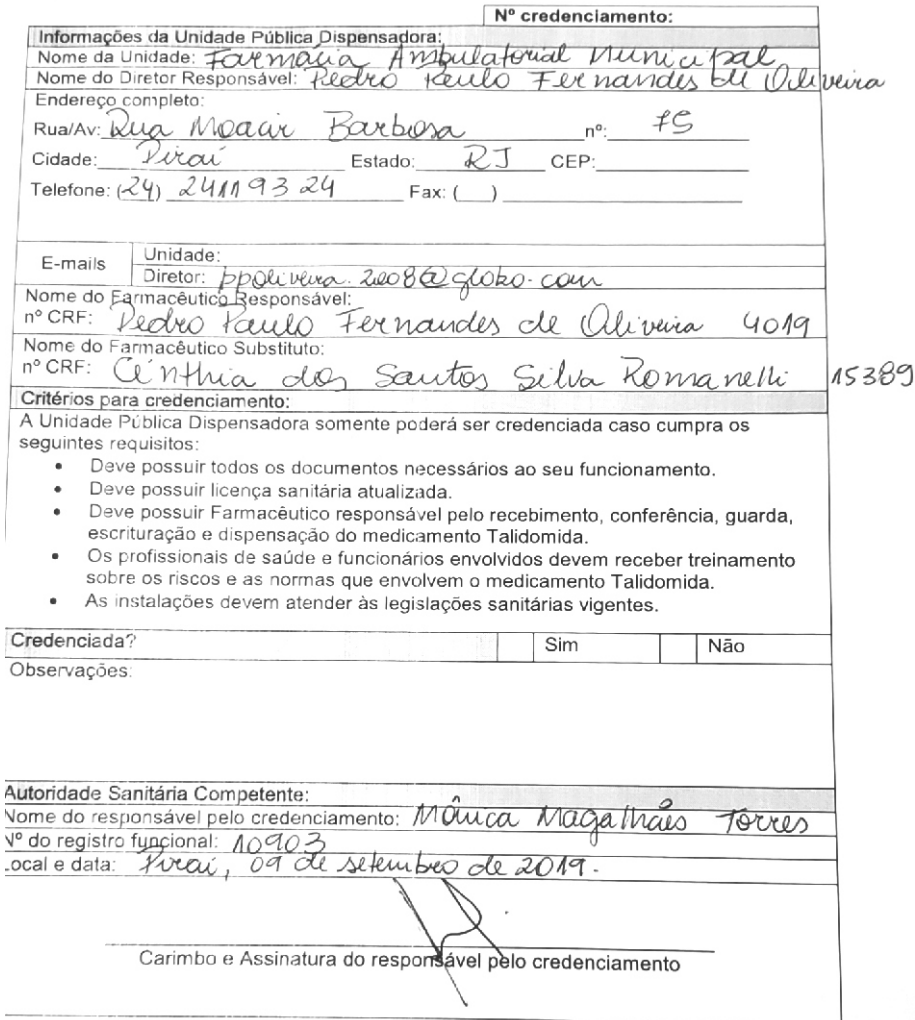 Nº credenciamento:
Informações da Unidade Pública Dispensadora:
Nome da Unidade: Farmácia Ambulatorial Municipal
Nome do Diretor Responsável: Pedro Paulo Fernandes de Oliveira
Endereço completo:
Rua/Av: Rua Moacir Barbosa nº: 75
Cidade: Piraí Estado: RJ CEP:
Telefone: (24) 24119324 Fax: ( )
E-mails
Unidade:
Diretor: ppoliveira.2008@globo.com
Nome do Farmacêutico Responsável:
nº CRF: Pedro Paulo Fernandes de Oliveira 4019
Nome do Farmacêutico Substituto:
nº CRF: Cínthia dos Santos Silva Romanelli 15389
Critérios para credenciamento:
A Unidade Pública Dispensadora somente poderá ser credenciada caso cumpra os
seguintes requisitos:
• Deve possuir todos os documentos necessários ao seu funcionamento.
• Deve possuir licença sanitária atualizada.
• Deve possuir Farmacêutico responsável pelo recebimento, conferência, guarda,
escrituração e dispensação do medicamento Talidomida.
• Os profissionais de saúde e funcionários envolvidos devem receber treinamento
sobre os riscos e as normas que envolvem o medicamento Talidomida.
• As instalações devem atender às legislações sanitárias vigentes.
Credenciada? Sim Não
Observações:
Autoridade Sanitária Competente:
Nome do responsável pelo credenciamento: Mônica Magalhães Torres
Nº do registro funcional: 10903
Local e data: Piraí, 09 de setembro de 2019.
Carimbo e Assinatura do responsável pelo credenciamento